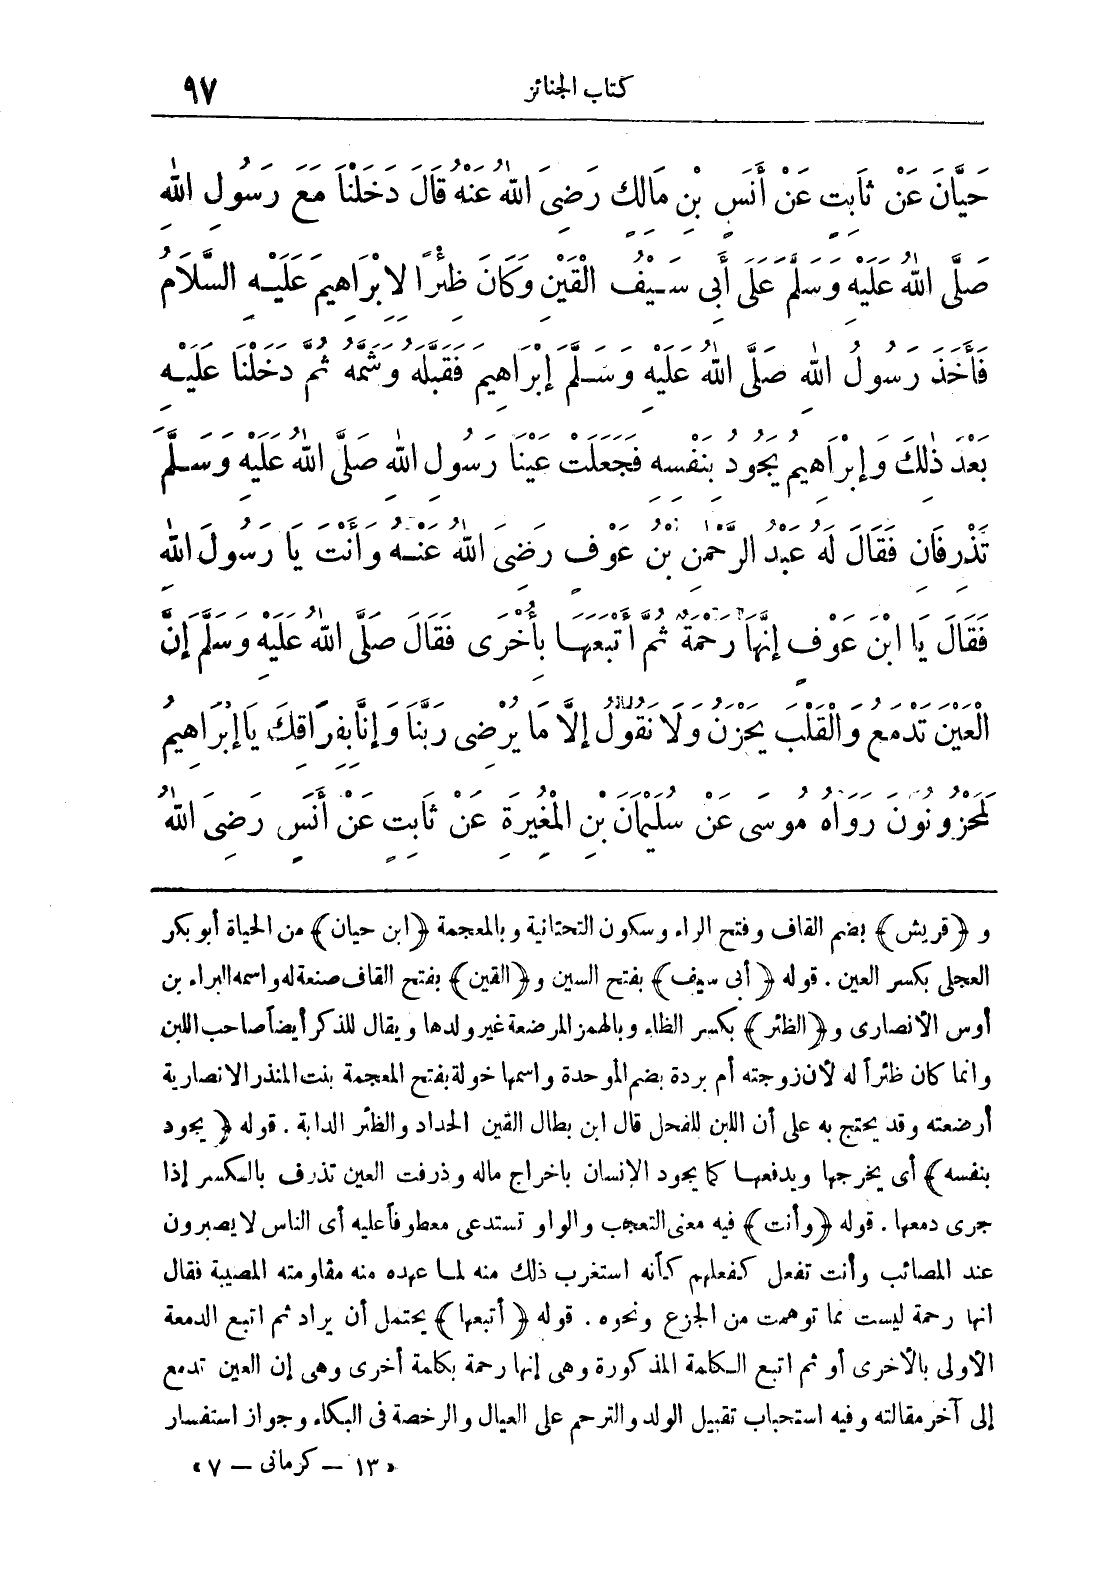 كتاب الجنائز ٩٧
حَيَّانَ عَنْ ثَابِتٍ عَنْ أَنَسِ بْنِ مَالِكٍ رَضِىَ اللهُ عَنْهُ قَالَ دَخَلْنَا مَعَ رَسُولِ اللهِ
صَلَّى اللهُ عَلَيْهِ وَسَلَّمَ عَلَى أَبِى سَيْفٍ الْقَيْنِ وَكَانَ ظِئْرًا لِإِبْرَاهِيمَ عَلَيْهِ السَّلَامُ
فَأَخَذَ رَسُولُ اللهِ صَلَّى اللهُ عَلَيْهِ وَسَلَّمَ إِبْرَاهِيمَ فَقَبَّلَهُ وَشَمَّهُ ثُمَّ دَخَلْنَا عَلَيْهِ
بَعْدَ ذٰلِكَ وَإِبْرَاهِيمُ يَجُودُ بِنَفْسِهِ فَجَعَلَتْ عَيْنَا رَسُولِ اللهِ صَلَّى اللهُ عَلَيْهِ وَسَلَّمَ
تَذْرِفَانِ فَقَالَ لَهُ عَبْدُ الرَّحْمٰنِ بْنُ عَوْفٍ رَضِىَ اللهُ عَنْهُ وَأَنْتَ يَا رَسُولَ اللهِ
فَقَالَ يَا ابْنَ عَوْفٍ إِنَّهَا رَحْمَةٌ ثُمَّ أَتْبَعَهَا بِأُخْرَى فَقَالَ صَلَّى اللهُ عَلَيْهِ وَسَلَّمَ إِنَّ
الْعَيْنَ تَدْمَعُ وَالْقَلْبَ يَحْزَنُ وَلَا نَقُولُ إِلَّا مَا يُرْضِى رَبَّنَا وَإِنَّا بِفِرَاقِكَ يَا إِبْرَاهِيمُ
لَمَحْزُونُونَ رَوَاهُ مُوسَى عَنْ سُلَيْمَانَ بْنِ الْمُغِيرَةِ عَنْ ثَابِتٍ عَنْ أَنَسٍ رَضِىَ اللهُ
و ﴿قريش﴾ بضم القاف وفتح الراء وسكون التحتانية وبالمعجمة ﴿ابن حيان﴾ من الحياة أبو بكر
العجلى بكسر العين . قوله ﴿أبى سيف﴾ بفتح السين و ﴿القين﴾ بفتح القاف صنعة له واسمه البراء بن
أوس الأنصارى و ﴿الظئر﴾ بكسر الظاء وبالهمز المرضعة غير ولدها ويقال للذكر أيضاً صاحب اللبن
وانما كان ظئراً له لأن زوجته أم بردة بضم الموحدة واسمها خولة بفتح المعجمة بنت المنذر الانصارية
أرضعته وقد يحتج به على أن اللبن للفحل قال ابن بطال القين الحداد والظئر الدابة . قوله ﴿يجود
بنفسه﴾ أى يخرجها ويدفعها كما يجود الإنسان باخراج ماله وذرفت العين تذرف بالكسر إذا
جرى دمعها . قوله ﴿وأنت﴾ فيه معنى التعجب والواو تستدعى معطوفاً عليه أى الناس لا يصبرون
عند المصائب وأنت تفعل كفعلهم كأنه استغرب ذلك منه لما عهده منه مقاومته المصيبة فقال
انها رحمة ليست مما توهمت من الجزع ونحوه . قوله ﴿أتبعها﴾ يحتمل أن يراد ثم اتبع الدمعة
الاولى بالأخرى أو ثم اتبع الكلمة المذكورة وهى إنها رحمة بكلمة أخرى وهى إن العين تدمع
إلى آخر مقالته وفيه استحباب تقبيل الولد والترحم على العيال والرخصة فى البكاء وجواز استفسار
« ١٣ - كرمانى - ٧ »